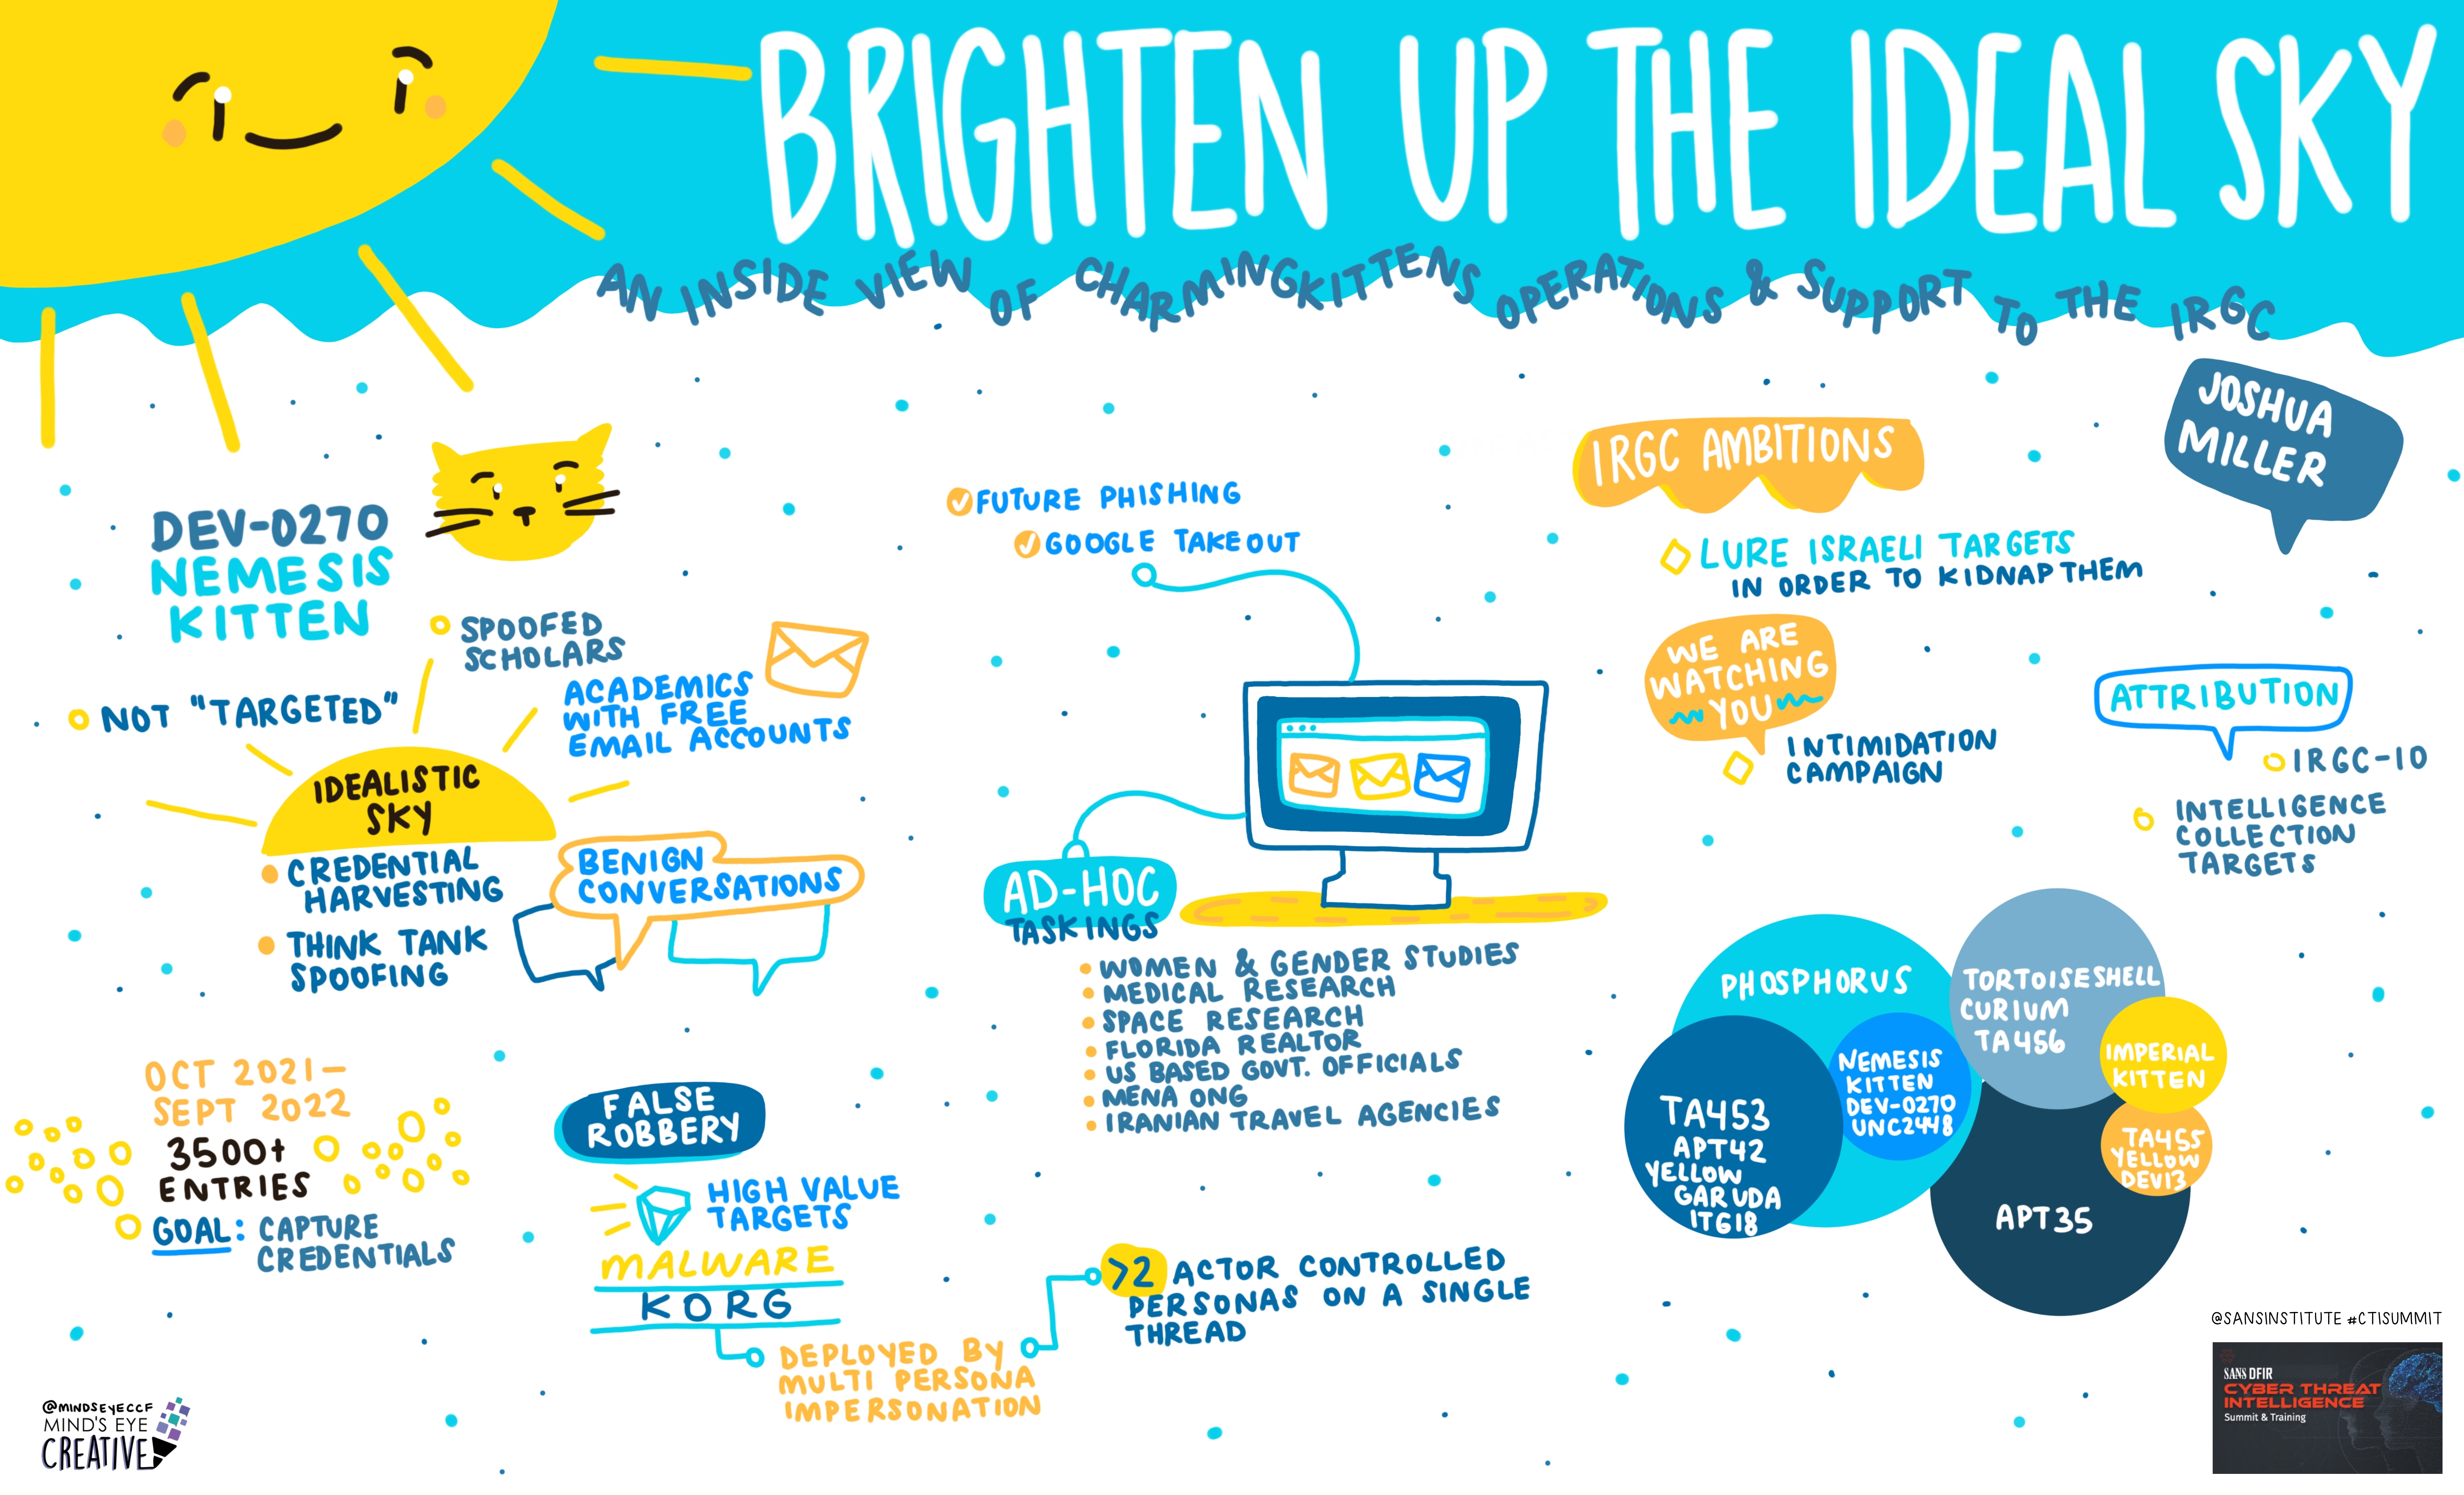 BRIGHTEN UP THE IDEAL SKY
AN INSIDE VIEW OF CHARMINGKITTENS OPERATIONS & SUPPORT TO THE IRGC
JOSHUA
MILLER
DEV-0270
NEMESIS
KITTEN
SPOOFED
SCHOLARS
NOT "TARGETED"
ACADEMICS
WITH FREE
EMAIL ACCOUNTS
IDEALISTIC
SKY
CREDENTIAL
HARVESTING
THINK TANK
SPOOFING
BENIGN
CONVERSATIONS
OCT 2021-
SEPT 2022
3500+
ENTRIES
GOAL: CAPTURE
CREDENTIALS
FALSE
ROBBERY
HIGH VALUE
TARGETS
MALWARE
KORG
DEPLOYED BY
MULTI PERSONA
IMPERSONATION
>2 ACTOR CONTROLLED
PERSONAS ON A SINGLE
THREAD
FUTURE PHISHING
GOOGLE TAKEOUT
AD-HOC
TASKINGS
WOMEN & GENDER STUDIES
MEDICAL RESEARCH
SPACE RESEARCH
FLORIDA REALTOR
US BASED GOVT. OFFICIALS
MENA ONG
IRANIAN TRAVEL AGENCIES
IRGC AMBITIONS
LURE ISRAELI TARGETS
IN ORDER TO KIDNAP THEM
WE ARE
WATCHING
YOU
INTIMIDATION
CAMPAIGN
ATTRIBUTION
IRGC-IO
INTELLIGENCE
COLLECTION
TARGETS
PHOSPHORUS
TA453
APT42
YELLOW
GARUDA
ITG18
NEMESIS
KITTEN
DEV-0270
UNC2448
TORTOISESHELL
CURIUM
TA456
IMPERIAL
KITTEN
TA455
YELLOW
DEV13
APT35
@SANSINSTITUTE #CTISUMMIT
SANS DFIR
CYBER THREAT
INTELLIGENCE
Summit & Training
@MINDSEYECCF
MIND'S EYE
CREATIVE